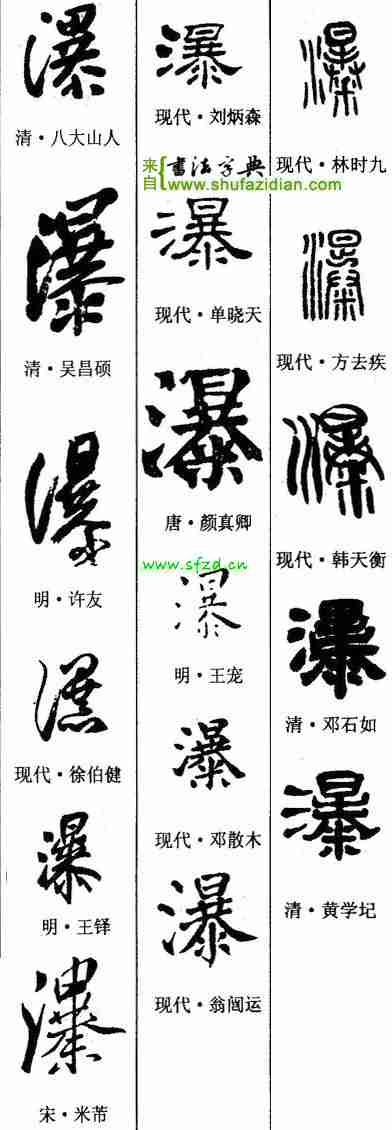 瀑
清·八大山人
瀑
清·吴昌硕
瀑
明·许友
瀑
现代·徐伯健
瀑
明·王铎
瀑
宋·米芾
瀑
现代·刘炳森
来自{书法字典
www.shufazidian.com
瀑
现代·单晓天
瀑
唐·颜真卿
www.sfzd.cn
瀑
明·王宠
瀑
现代·邓散木
瀑
现代·翁闿运
瀑
现代·林时九
瀑
现代·方去疾
瀑
现代·韩天衡
瀑
清·邓石如
瀑
清·黄学圮